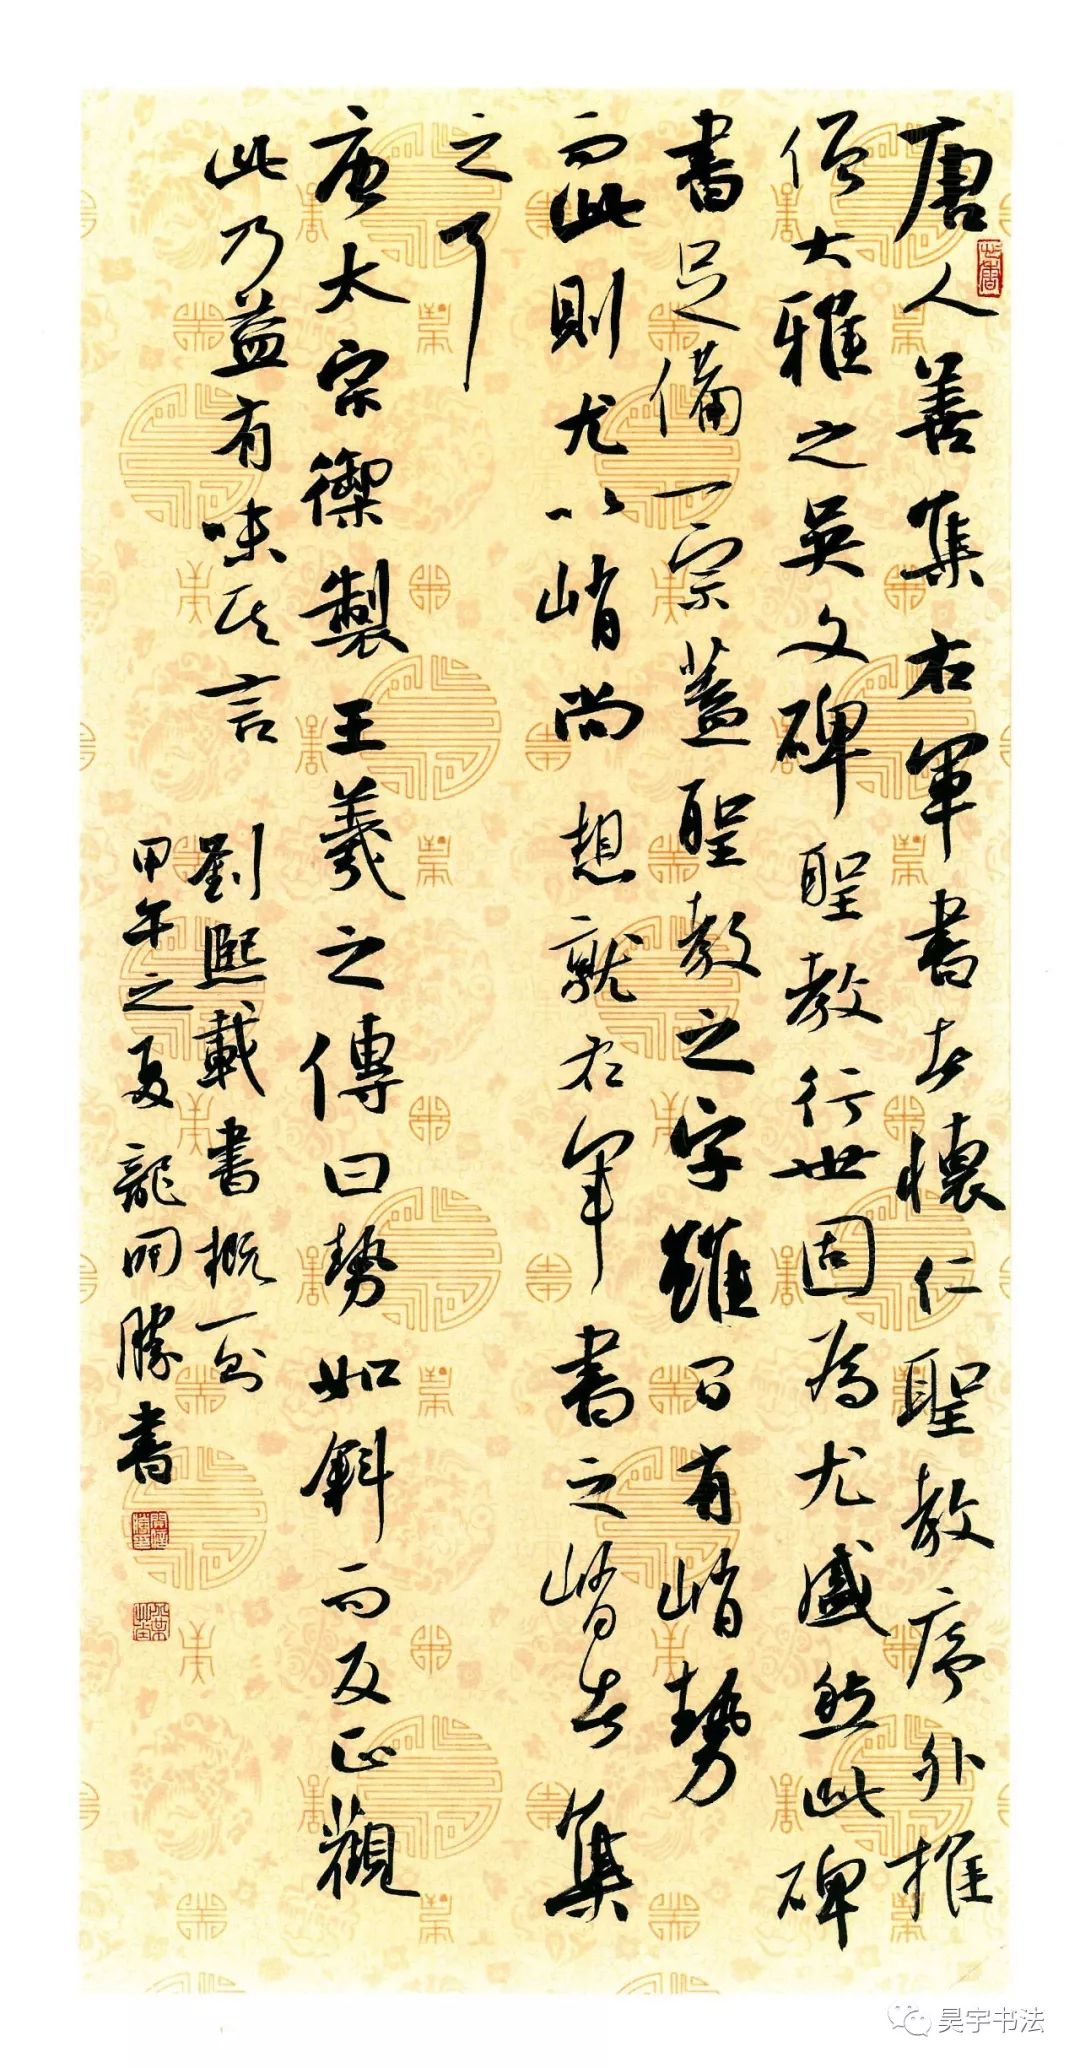 唐人善集右軍書者懷仁聖教序外推
僧大雅之吳文碑聖教行世固為尤盛然此碑
書足備一宗蓋聖教之字雖間有峭勢
而此則尤以峭尚想就右軍書之峭者集
之耳
唐太宗禦製王羲之傳曰勢如斜而反正觀
此乃益有味其言
劉熙載書概一則
甲午之夏龍開勝書
昊宇书法